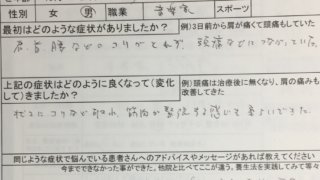 性別 女 男 職業 音楽家 スポーツ
最初はどのような症状がありましたか? 例)3日前から肩が痛くて頭痛もしていた
肩、首、腰などのコリがとれず、頭痛などにつながっていた。
上記の症状はどのように良くなって(変化して)きましたか? 例)頭痛は治療後に無くなり、肩の痛みも改善してきた
コリなど取れ、筋肉が緊張する感じも
同じような症状で悩んでいる患者さんへのアドバイスやメッセージがあれば教えてください
今までできなかった事ができた。他院と比べてここが違う、養生法を実践してみて等々